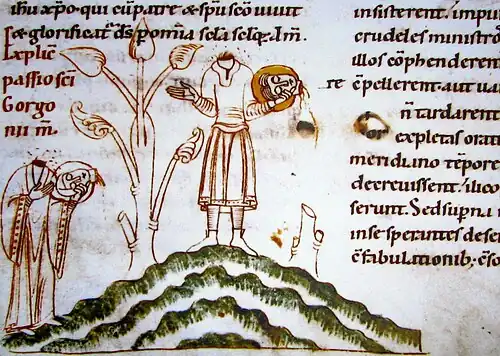 ihu xp̄o· qui cū patre & sp̄u sc̄o uiuit
& glorificat᷑ d̄s p om̄ia sc̄la sc̄lo⁊. Am̄.
Explic̄
passio sc̄i
Gorgo
nii m̄.
insisterent. impu
crudeles ministro
illos cōp̄henderent
re c̄pellerent. aut ua
n̄ tardarent
expletas orati
meridiano tēpore
decreuissent. ilico
serunt. Sed sup̄na i
inse sperantes dese
c̄fabulationib; c̄so